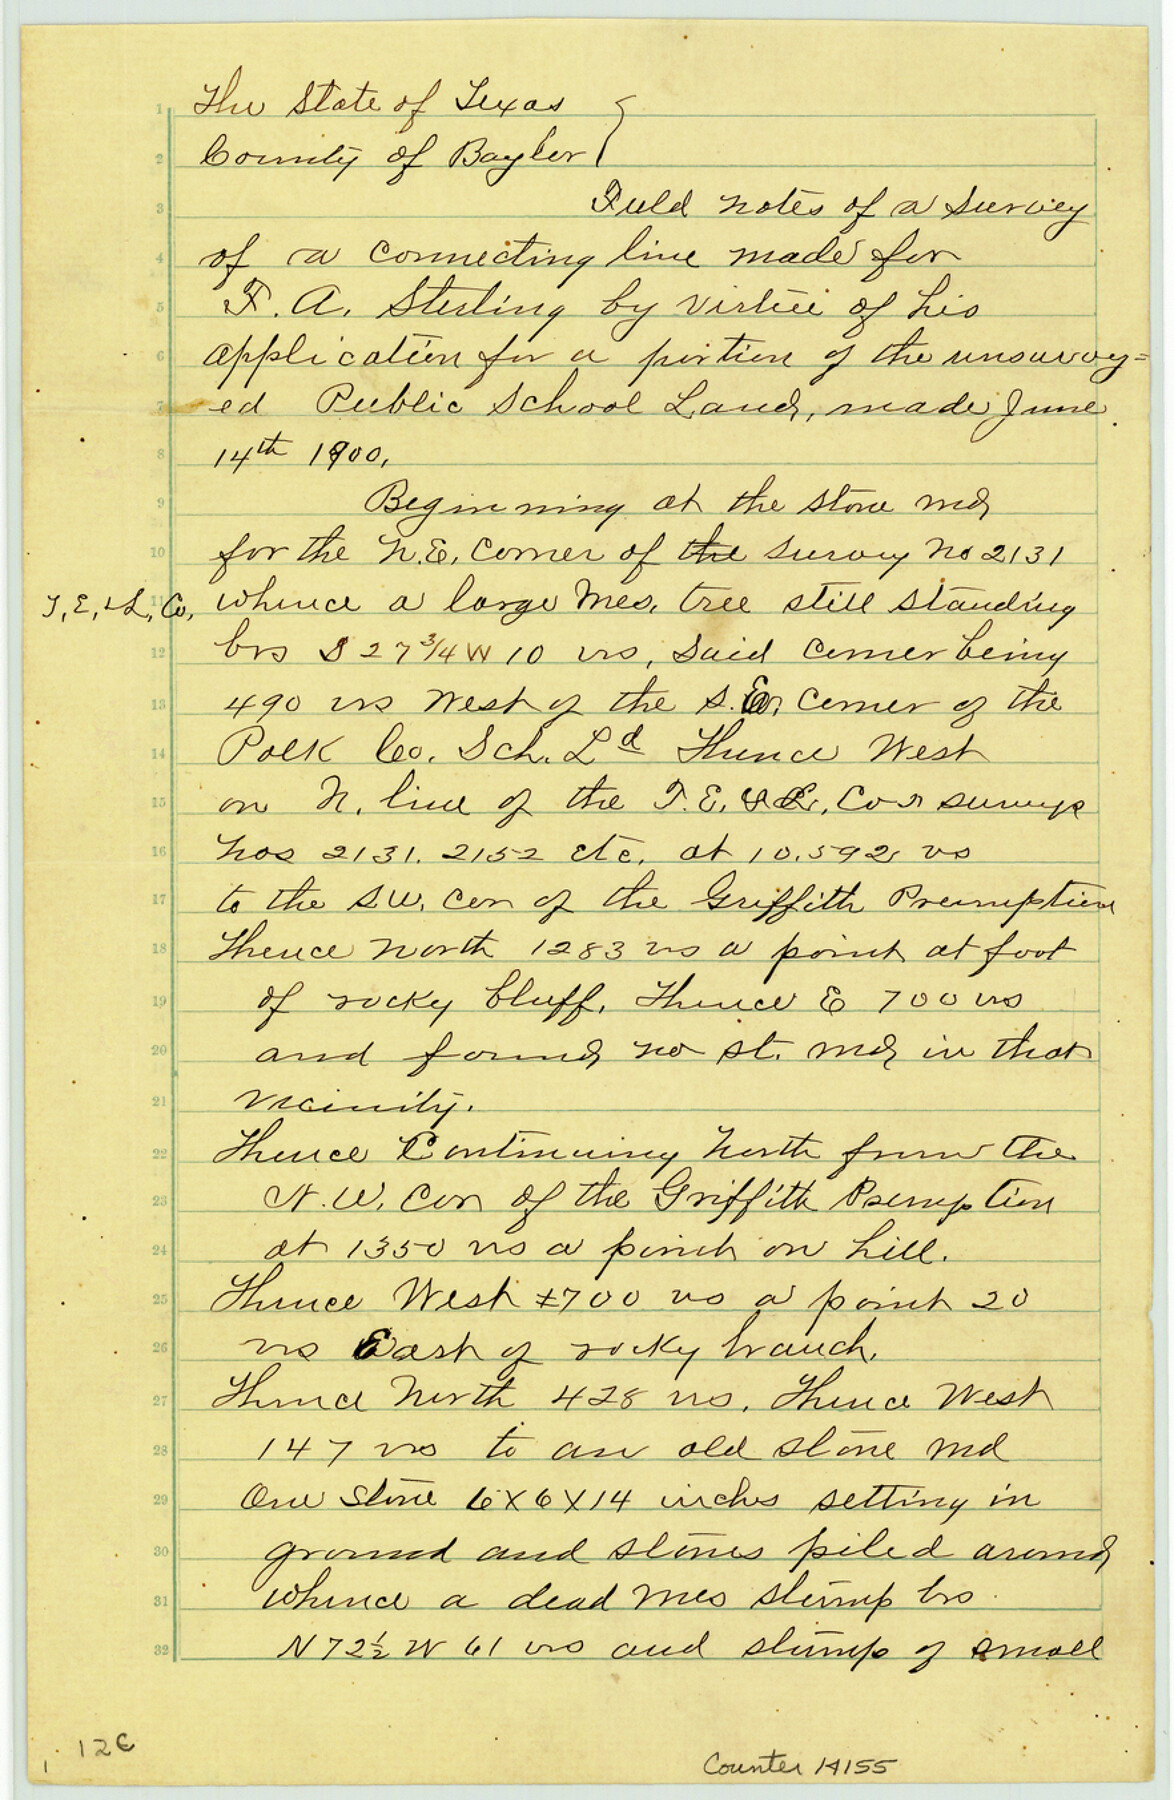 The State of Texas
County of Baylor
Field notes of a survey
of a connecting line made for
F. A. Sterling by virtue of his
application for a portion of the unsurvey=
ed Public School Land, made June
14th 1900.
Beginning at the stone md
for the N.E. Corner of the survey no 2131
T, E, & L, Co, whence a large Mes. tree still standing
brs S 27 3/4 W 10 vrs, said corner being
490 vrs West of the S.E. Corner of the
Polk Co. Sch. Ld Thence West
on N. line of the T. E. & L. Co s surveys
nos 2131. 2152 etc. at 10.592 vs
to the S.W. Cor of the Griffith Preemption
Thence North 1283 vs a point at foot
of rocky bluff. Thence E 700 vrs
and found no st. md in that
vicinity.
Thence Continuing North from the
N.W. Cor of the Griffith Preemption
at 1350 vrs a point on hill.
Thence West 700 vs a point 20
vrs East of rocky branch.
Thence North 428 vrs. Thence West
147 vrs to an old stone md
One stone 6 X 6 X 14 inches setting in
ground and stones piled around
whence a dead Mes stump brs
N 72 1/2 W 61 vrs and stump of small
12C
1
Counter 14155
1
2
3
4
5
6
7
8
9
10
11
12
13
14
15
16
17
18
19
20
21
22
23
24
25
26
27
28
29
30
31
32